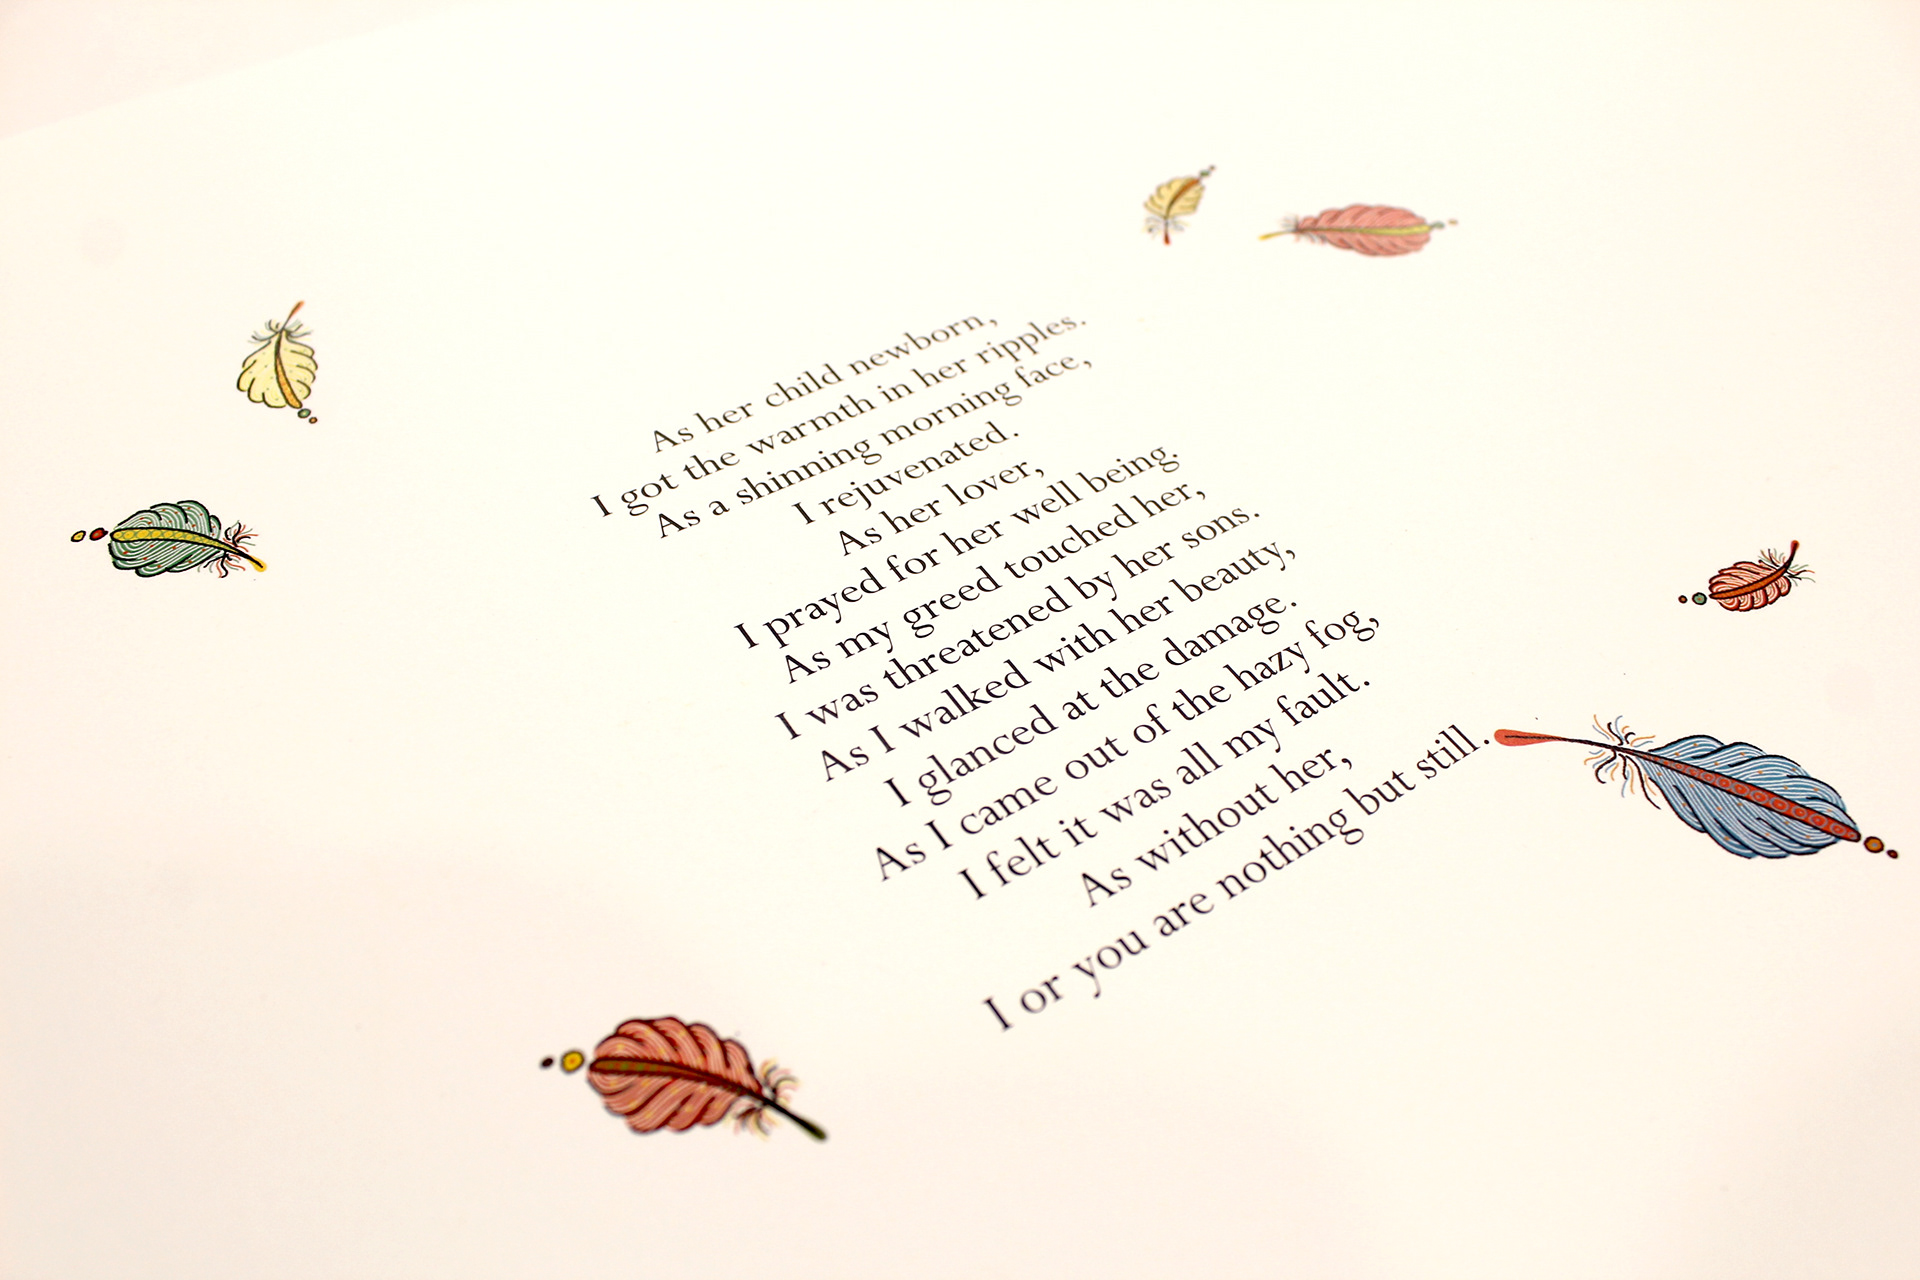 As her child newborn,
I got the warmth in her ripples.
As a shinning morning face,
I rejuvenated.
As her lover,
I prayed for her well being.
As my greed touched her,
I was threatened by her sons.
As I walked with her beauty,
I glanced at the damage.
As I came out of the hazy fog,
I felt it was all my fault.
As without her,
I or you are nothing but still.